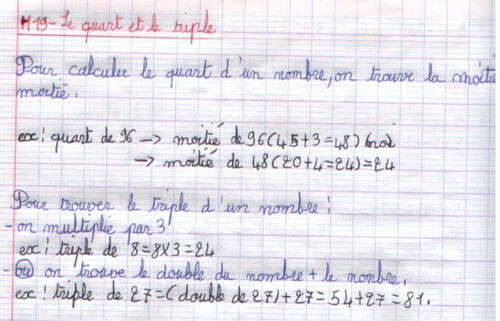 M19 - Le quart et le triple
Pour calculer le quart d'un nombre, on trouve la moitié
moitié.
ex : quart de 96 → moitié de 96 (45+3=48)
→ moitié de 48 (20+4=24)=24
Pour trouver le triple d'un nombre :
- on multiplie par 3
ex : triple de 8=8x3=24
- ou on trouve le double du nombre + le nombre.
ex : triple de 27=(double de 27)+27=54+27=81.